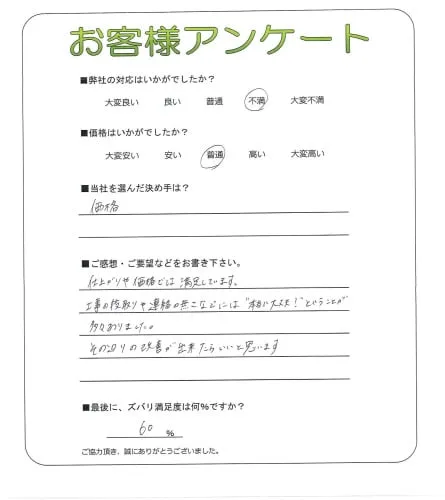 お客様アンケート
■弊社の対応はいかがでしたか?
大変良い 良い 普通 不満 大変不満
■価格はいかがでしたか?
大変安い 安い 普通 高い 大変高い
■当社を選んだ決め手は?
価格
■ご感想・ご要望などをお書き下さい。
仕上がりや価格では満足しています。
工事の段取りや連絡の無さなどには“本当に大丈夫!”ということが
多々ありました。
その辺りの改善が出来たらいいと思います
■最後に、ズバリ満足度は何%ですか?
60 %
ご協力頂き、誠にありがとうございました。